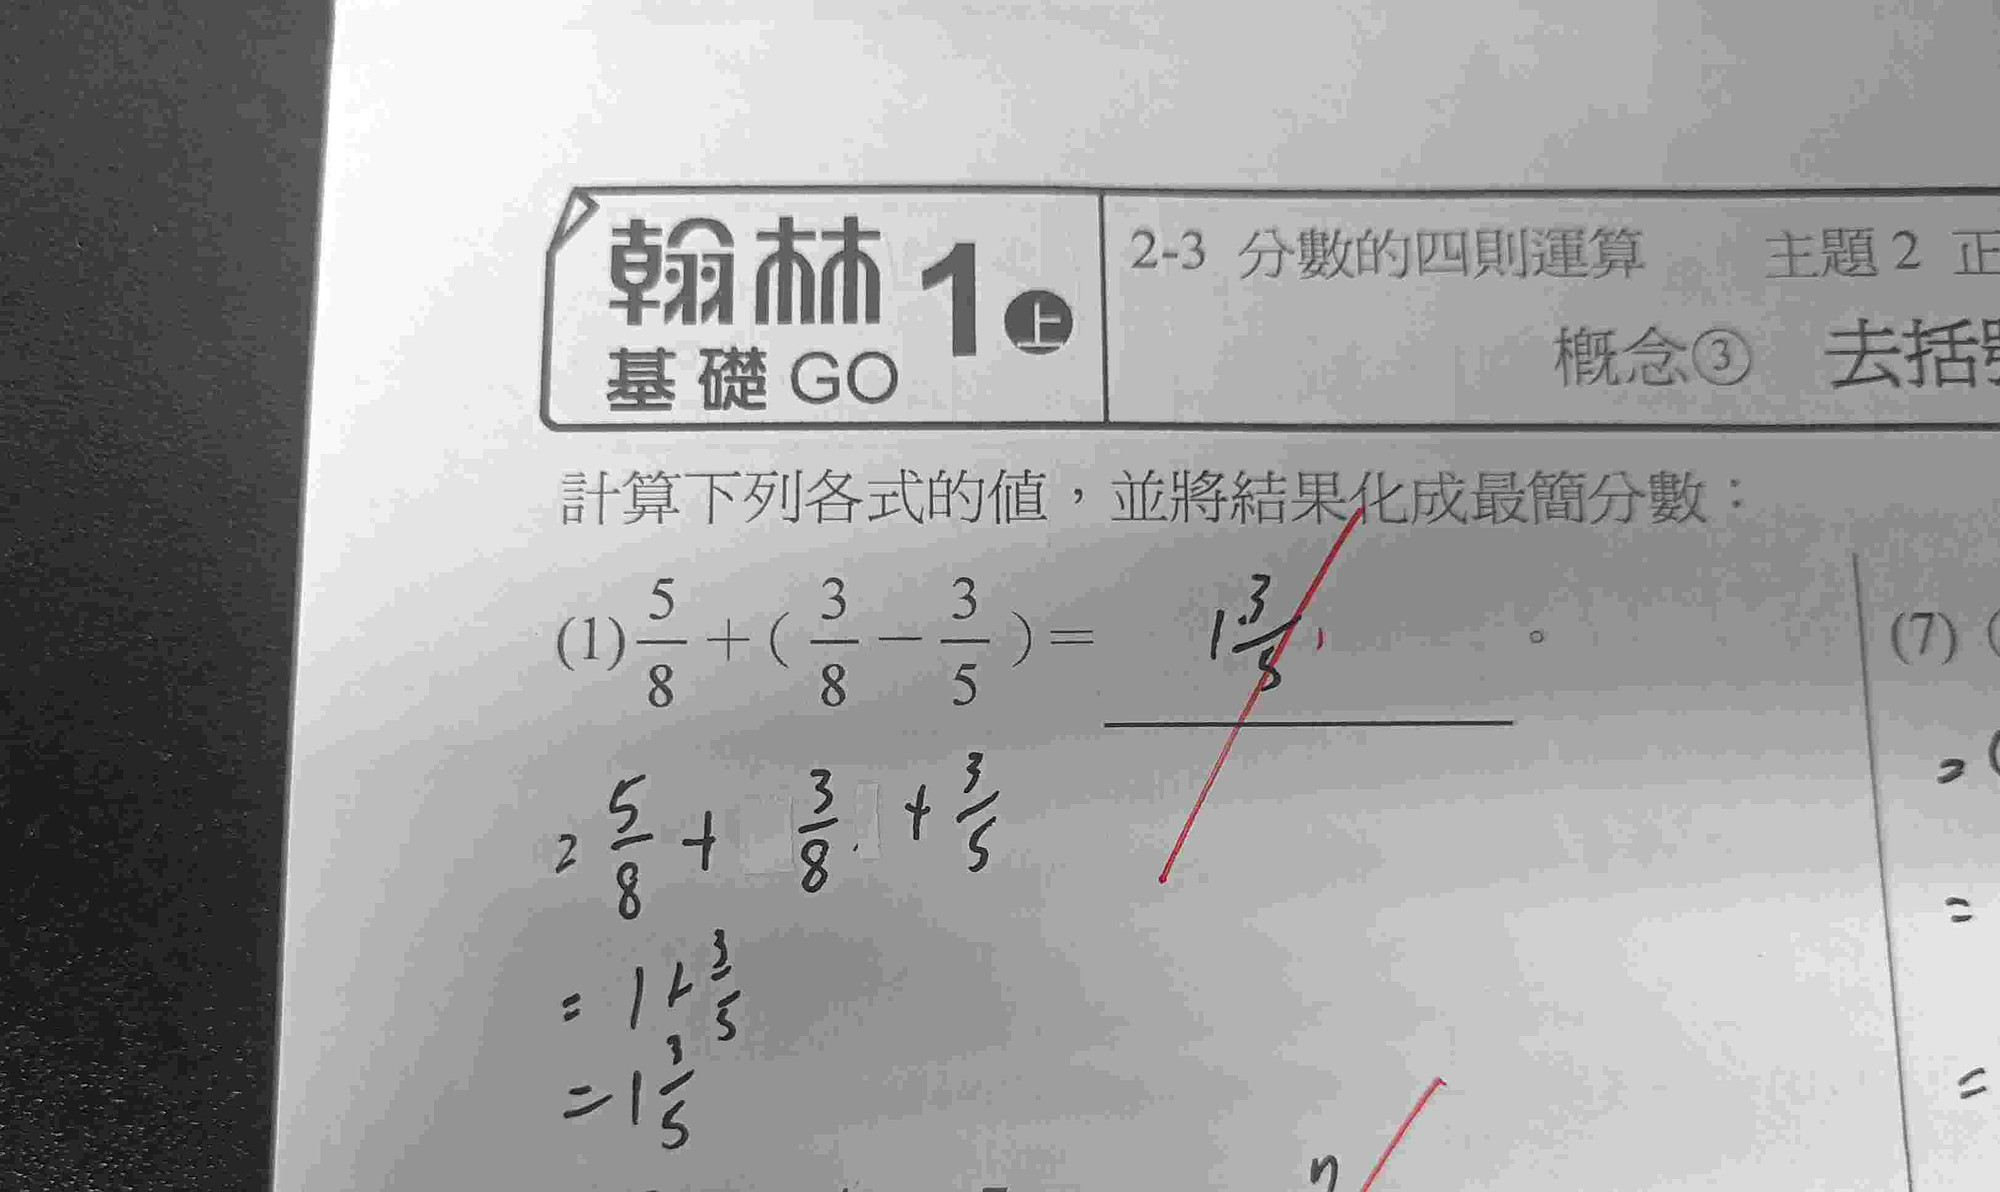 翰林 1 上
基礎 GO
2-3 分數的四則運算 主題 2 正
概念③ 去括號
計算下列各式的值，並將結果化成最簡分數：
(1) 5/8 + ( 3/8 − 3/5 ) = 1 3/5 。
= 5/8 + 3/8 + 3/5
= 1 + 3/5
= 1 3/5
(7) (
= (
=
=